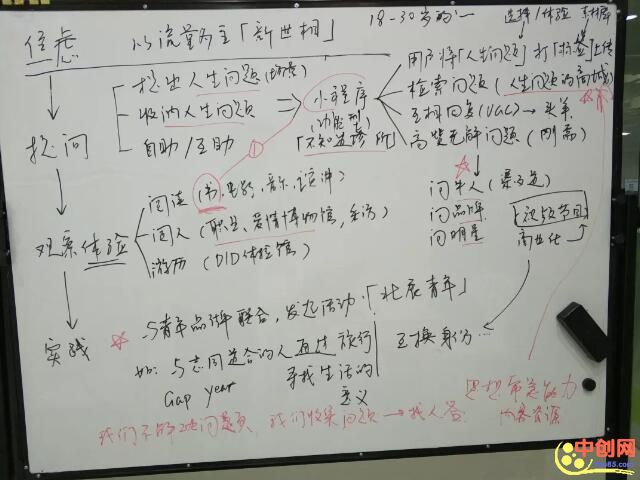 18-30岁的
选择/体验
焦虑
以流量为主「新世相」
提出人生问题(场景)
收纳人生问题
自助/互助
小程序
(功能型)
「不知道诊所」
①
用户将「人生问题」打「标签」上传
检索问题(人生问题的商城)
互相回复(UGC)→头条
高赞无解问题(刚需)
提问
问牛人(寨多选)
问品牌
问明星
视频节目
商业化
观察体验
阅读(书、电影、音乐、演讲)
阅人(职业、爱情博物馆、采访)
游历(DID体验馆)
实践
与青年品牌联合,发起活动「北辰青年」
如:与志同道合的人通过旅行
Gap year
寻找生活的
意义
互换身份...
思想制造能力
内容资源
我们不解决问题,我们收集问题→找人答
中创网